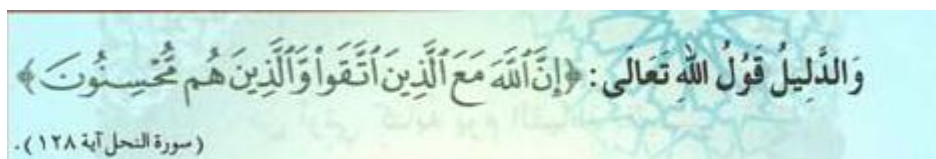 وَالدَّلِيلُ قَوْلُ اللهِ تَعَالَى: ﴿إِنَّ ٱللَّهَ مَعَ ٱلَّذِينَ ٱتَّقَواْ وَّٱلَّذِينَ هُم مُّحْسِنُونَ﴾
(سورة النحل آية ١٢٨).